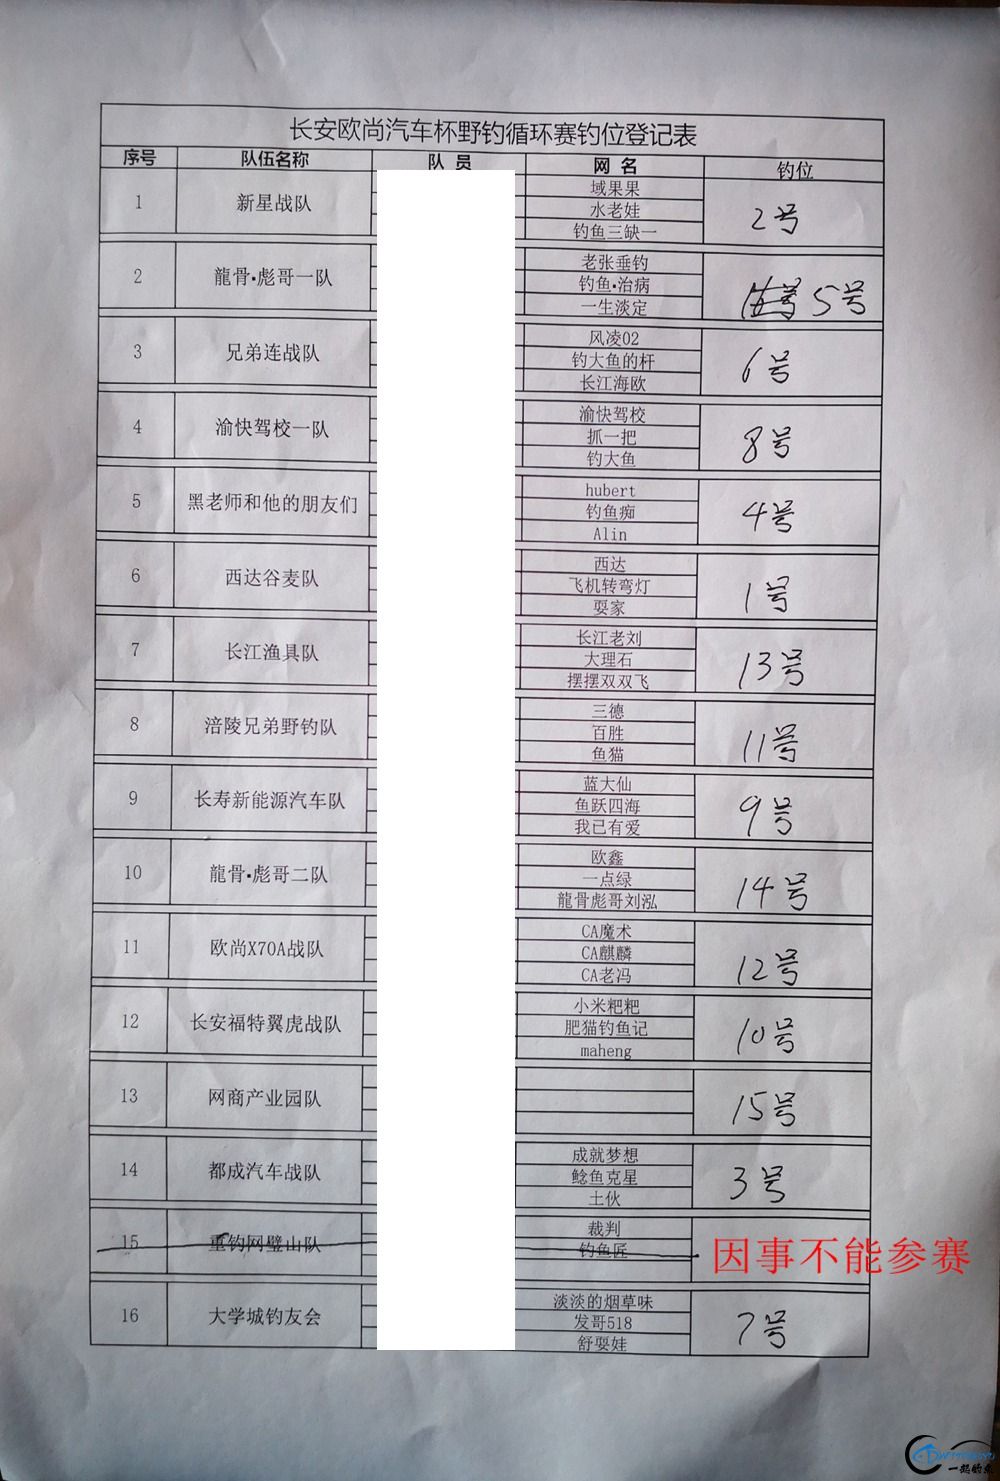 长安欧尚汽车杯野钓循环赛钓位登记表
序号 队伍名称 队 员 网 名 钓位
1 新星战队 域果果 水老娃 钓鱼三缺一 2号
2 龍骨·彪哥一队 老张垂钓 钓鱼·治病 一生淡定 5号
3 兄弟连战队 风凌02 钓大鱼的杆 长江海欧 6号
4 渝快驾校一队 渝快驾校 抓一把 钓大鱼 8号
5 黑老师和他的朋友们 hubert 钓鱼痴 Alin 4号
6 西达谷麦队 西达 飞机转弯灯 耍家 1号
7 长江渔具队 长江老刘 大理石 摆摆双双飞 13号
8 涪陵兄弟野钓队 三德 百胜 鱼猫 11号
9 长寿新能源汽车队 蓝大仙 鱼跃四海 我已有爱 9号
10 龍骨·彪哥二队 欧鑫 一点绿 龍骨彪哥刘泓 14号
11 欧尚X70A战队 CA魔术 CA麒麟 CA老冯 12号
12 长安福特翼虎战队 小米粑粑 肥猫钓鱼记 maheng 10号
13 网商产业园队 15号
14 都成汽车战队 成就梦想 鲶鱼克星 土伙 3号
15 重钓网璧山队 裁判 钓鱼匠 因事不能参赛
16 大学城钓友会 淡淡的烟草味 发哥518 舒耍娃 7号